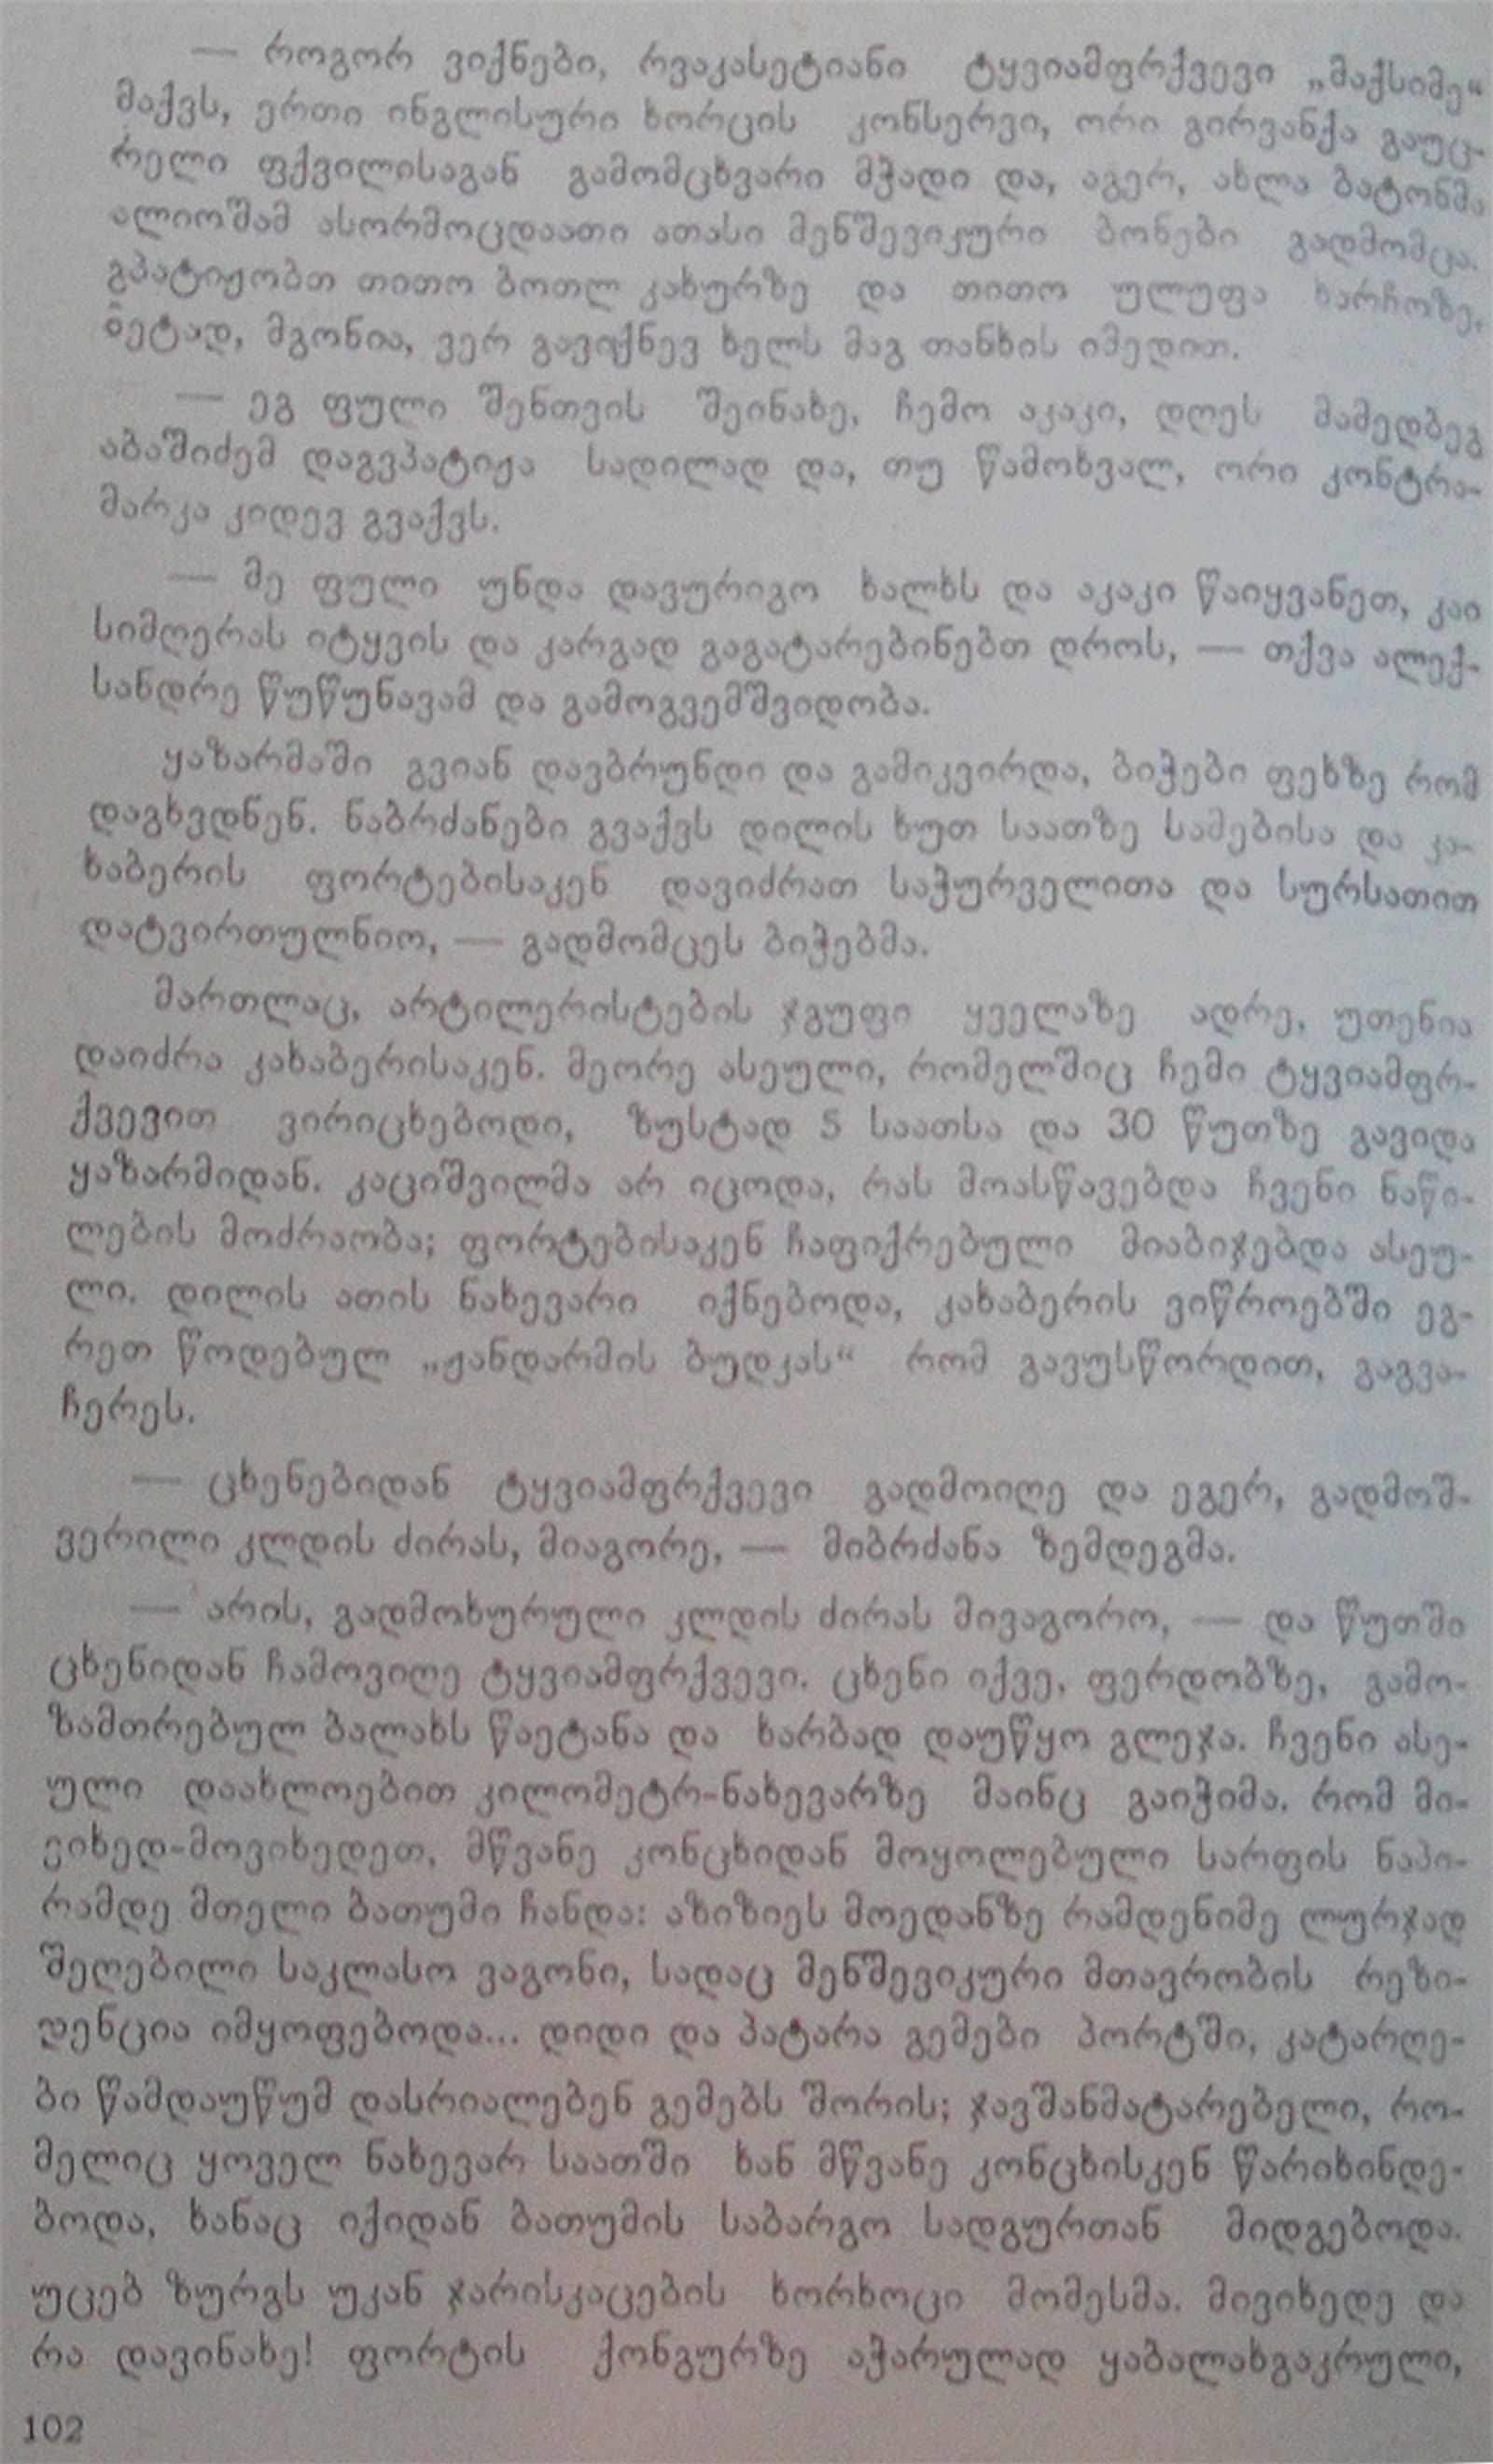 — როგორ ვიქნები, რვაკასეტიანი ტყვიამფრქვევი „მაქსიმე“
მაქვს, ერთი ინგლისური ხორცის კონსერვი, ორი გირვანქა გაუც-
რელი ფქვილისაგან გამომცხვარი მჭადი და, აგერ, ახლა ბატონმა
ალიოშამ ასორმოცდაათი ათასი მენშევიკური ბონები გადმომცა.
გპატიჟობთ თითო ბოთლ კახურზე და თითო ულუფა ხარჩოზე,
მეტად, მგონია, ვერ გავიქნევ ხელს მაგ თანხის იმედით.
— ეგ ფული შენთვის შეინახე, ჩემო აკაკი, დღეს მამედბეგ
აბაშიძემ დაგვპატიჟა სადილად და, თუ წამოხვალ, ორი კონტრა-
მარკა კიდევ გვაქვს.
— მე ფული უნდა დავურიგო ხალხს და აკაკი წაიყვანეთ, კაი
სიმღერას იტყვის და კარგად გაგატარებინებთ დროს, — თქვა ალექ-
სანდრე წუწუნავამ და გამოგვემშვიდობა.
ყაზარმაში გვიან დავბრუნდი და გამიკვირდა, ბიჭები ფეხზე რომ
დაგხვდნენ. ნაბრძანები გვაქვს დილის ხუთ საათზე სამებისა და კა-
ხაბერის ფორტებისაკენ დავიძრათ საჭურველითა და სურსათით
დატვირთულნიო, — გადმომცეს ბიჭებმა.
მართლაც, არტილერისტების ჯგუფი ყველაზე ადრე, უთენია
დაიძრა კახაბერისაკენ. მეორე ასეული, რომელშიც ჩემი ტყვიამფრ-
ქვევით ვირიცხებოდი, ზუსტად 5 საათსა და 30 წუთზე გავიდა
ყაზარმიდან. კაციშვილმა არ იცოდა, რას მოასწავებდა ჩვენი ნაწი-
ლების მოძრაობა; ფორტებისაკენ ჩაფიქრებული მიაბიჯებდა ასეუ-
ლი. დილის ათის ნახევარი იქნებოდა, კახაბერის ვიწროებში ეგ-
რეთ წოდებულ „ჟანდარმის ბუდკას“ რომ გავუსწორდით, გაგვა-
ჩერეს.
— ცხენებიდან ტყვიამფრქვევი გადმოიღე და ეგერ, გადმოშ-
ვერილი კლდის ძირას, მიაგორე, — მიბრძანა ზემდეგმა.
— არის, გადმოხურული კლდის ძირას მივაგორო, — და წუთში
ცხენიდან ჩამოვიღე ტყვიამფრქვევი. ცხენი იქვე, ფერდობზე, გამო-
ზამთრებულ ბალახს წაეტანა და ხარბად დაუწყო გლეჯა. ჩვენი ასე-
ული დაახლოებით კილომეტრ-ნახევარზე მაინც გაიჭიმა. რომ მი-
ვიხედ-მოვიხედეთ, მწვანე კონცხიდან მოყოლებული სარფის ნაპი-
რამდე მთელი ბათუმი ჩანდა: აზიზიეს მოედანზე რამდენიმე ლურჯად
შეღებილი საკლასო ვაგონი, სადაც მენშევიკური მთავრობის რეზი-
დენცია იმყოფებოდა... დიდი და პატარა გემები პორტში, კატარღე-
ბი წამდაუწუმ დასრიალებენ გემებს შორის; ჯავშანმატარებელი, რო-
მელიც ყოველ ნახევარ საათში ხან მწვანე კონცხისკენ წარიხინდე-
ბოდა, ხანაც იქიდან ბათუმის საბარგო სადგურთან მიდგებოდა.
უცებ ზურგს უკან ჯარისკაცების ხორხოცი მომესმა. მივიხედე და
რა დავინახე! ფორტის ქონგურზე აჭარულად ყაბალახგაკრული,
102